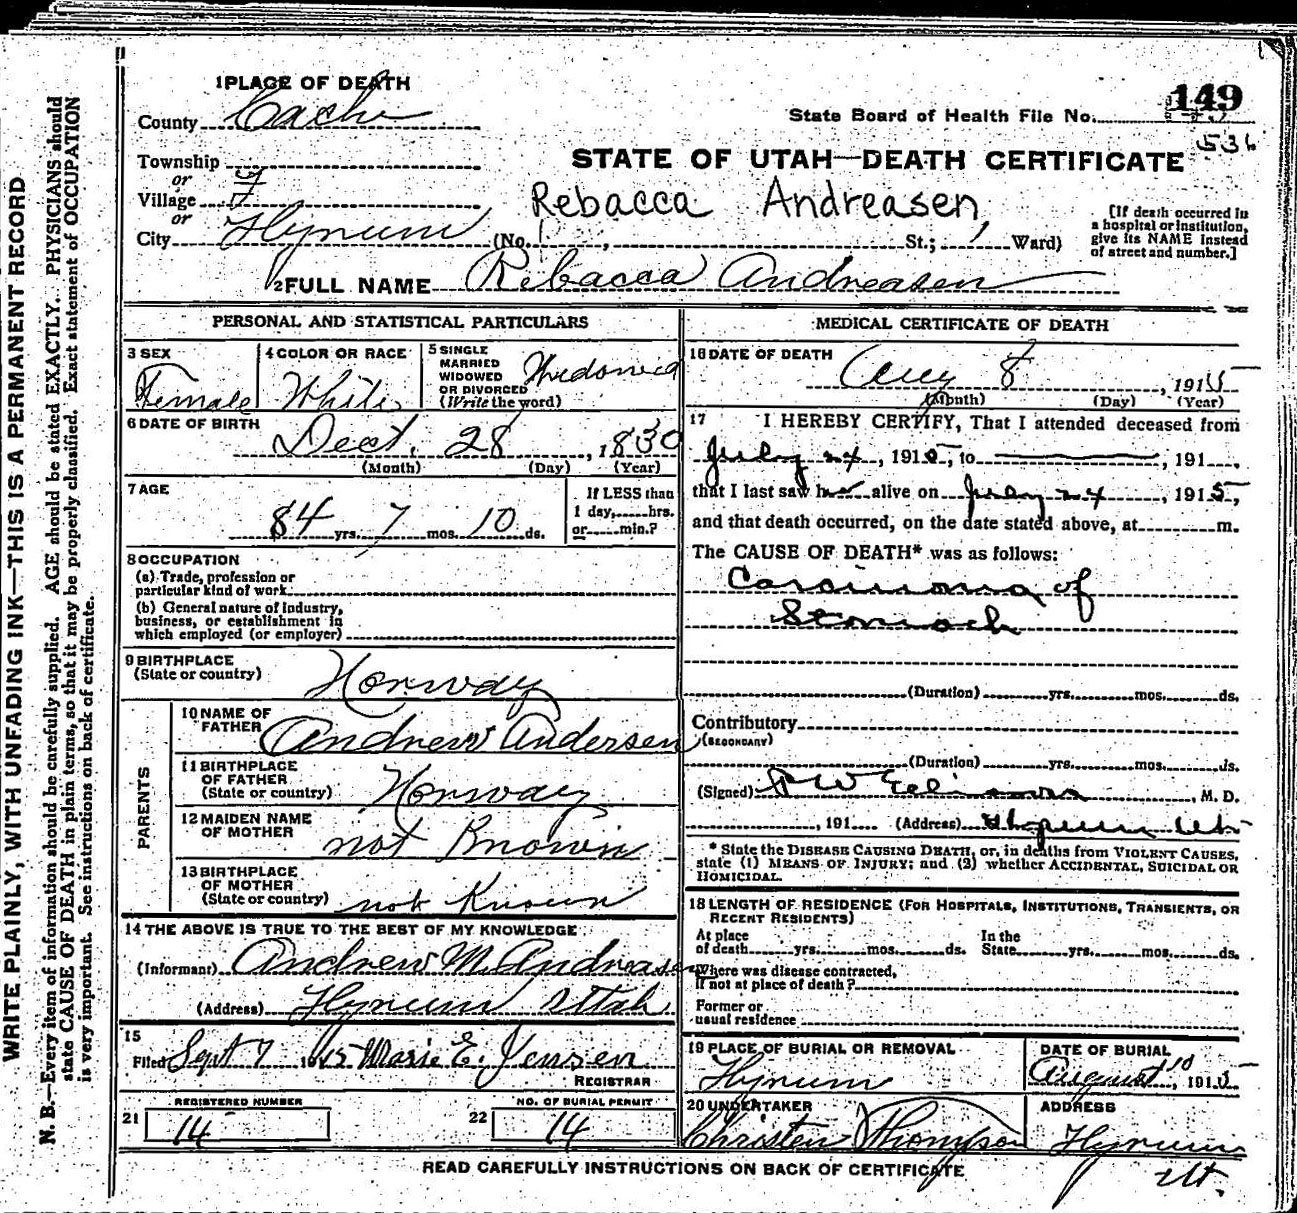 WRITE PLAINLY, WITH UNFADING INK—THIS IS A PERMANENT RECORD
N. B.—Every item of information should be carefully supplied. AGE should be stated EXACTLY. PHYSICIANS should
state CAUSE OF DEATH in plain terms, so that it may be properly classified. Exact statement of OCCUPATION
is very important. See instructions on back of certificate.
1 PLACE OF DEATH
County Cache
Township
or
Village
or
City Hyrum
149
State Board of Health File No.
536
STATE OF UTAH—DEATH CERTIFICATE
Rebacca Andreasen
(No. , St.; Ward)
[If death occurred in
a hospital or institution,
give its NAME instead
of street and number.]
2 FULL NAME Rebacca Andreasen
PERSONAL AND STATISTICAL PARTICULARS
3 SEX
Female
4 COLOR OR RACE
White
5 SINGLE
MARRIED
WIDOWED
OR DIVORCED
(Write the word)
Widowed
6 DATE OF BIRTH
Dect. 28, 1830
(Month) (Day) (Year)
7 AGE
84 yrs. 7 mos. 10 ds.
If LESS than
1 day,......hrs.
or......min.?
8 OCCUPATION
(a) Trade, profession or
particular kind of work
(b) General nature of industry,
business, or establishment in
which employed (or employer)
9 BIRTHPLACE
(State or country)
Norway
PARENTS
10 NAME OF
FATHER
Andrew Andersen
11 BIRTHPLACE
OF FATHER
(State or country)
Norway
12 MAIDEN NAME
OF MOTHER
not Known
13 BIRTHPLACE
OF MOTHER
(State or country)
not Known
14 THE ABOVE IS TRUE TO THE BEST OF MY KNOWLEDGE
(Informant) Andrew M. Andreasen
(Address) Hyrum Utah
15
Filed Sept 7 1915 Marie E. Jensen
REGISTRAR
REGISTERED NUMBER
21 14
NO. OF BURIAL PERMIT
22 14
MEDICAL CERTIFICATE OF DEATH
16 DATE OF DEATH
Aug 8, 1915
(Month) (Day) (Year)
17 I HEREBY CERTIFY, That I attended deceased from
July 24, 1915, to , 191 ,
that I last saw her alive on July 24, 1915,
and that death occurred, on the date stated above, at m.
The CAUSE OF DEATH* was as follows:
Carcinoma of
Stomach
(Duration) yrs. mos. ds.
Contributory
(SECONDARY)
(Duration) yrs. mos. ds.
(Signed) , M. D.
, 191 (Address) Hyrum Ut
* State the DISEASE CAUSING DEATH, or, in deaths from VIOLENT CAUSES,
state (1) MEANS OF INJURY; and (2) whether ACCIDENTAL, SUICIDAL OR
HOMICIDAL.
18 LENGTH OF RESIDENCE (FOR HOSPITALS, INSTITUTIONS, TRANSIENTS, OR
RECENT RESIDENTS)
At place
of death yrs. mos. ds.
In the
State yrs. mos. ds.
Where was disease contracted,
If not at place of death?
Former or
usual residence
19 PLACE OF BURIAL OR REMOVAL
Hyrum
DATE OF BURIAL
August 10, 1915
20 UNDERTAKER
Christen Thompson
ADDRESS
Hyrum
Ut.
READ CAREFULLY INSTRUCTIONS ON BACK OF CERTIFICATE